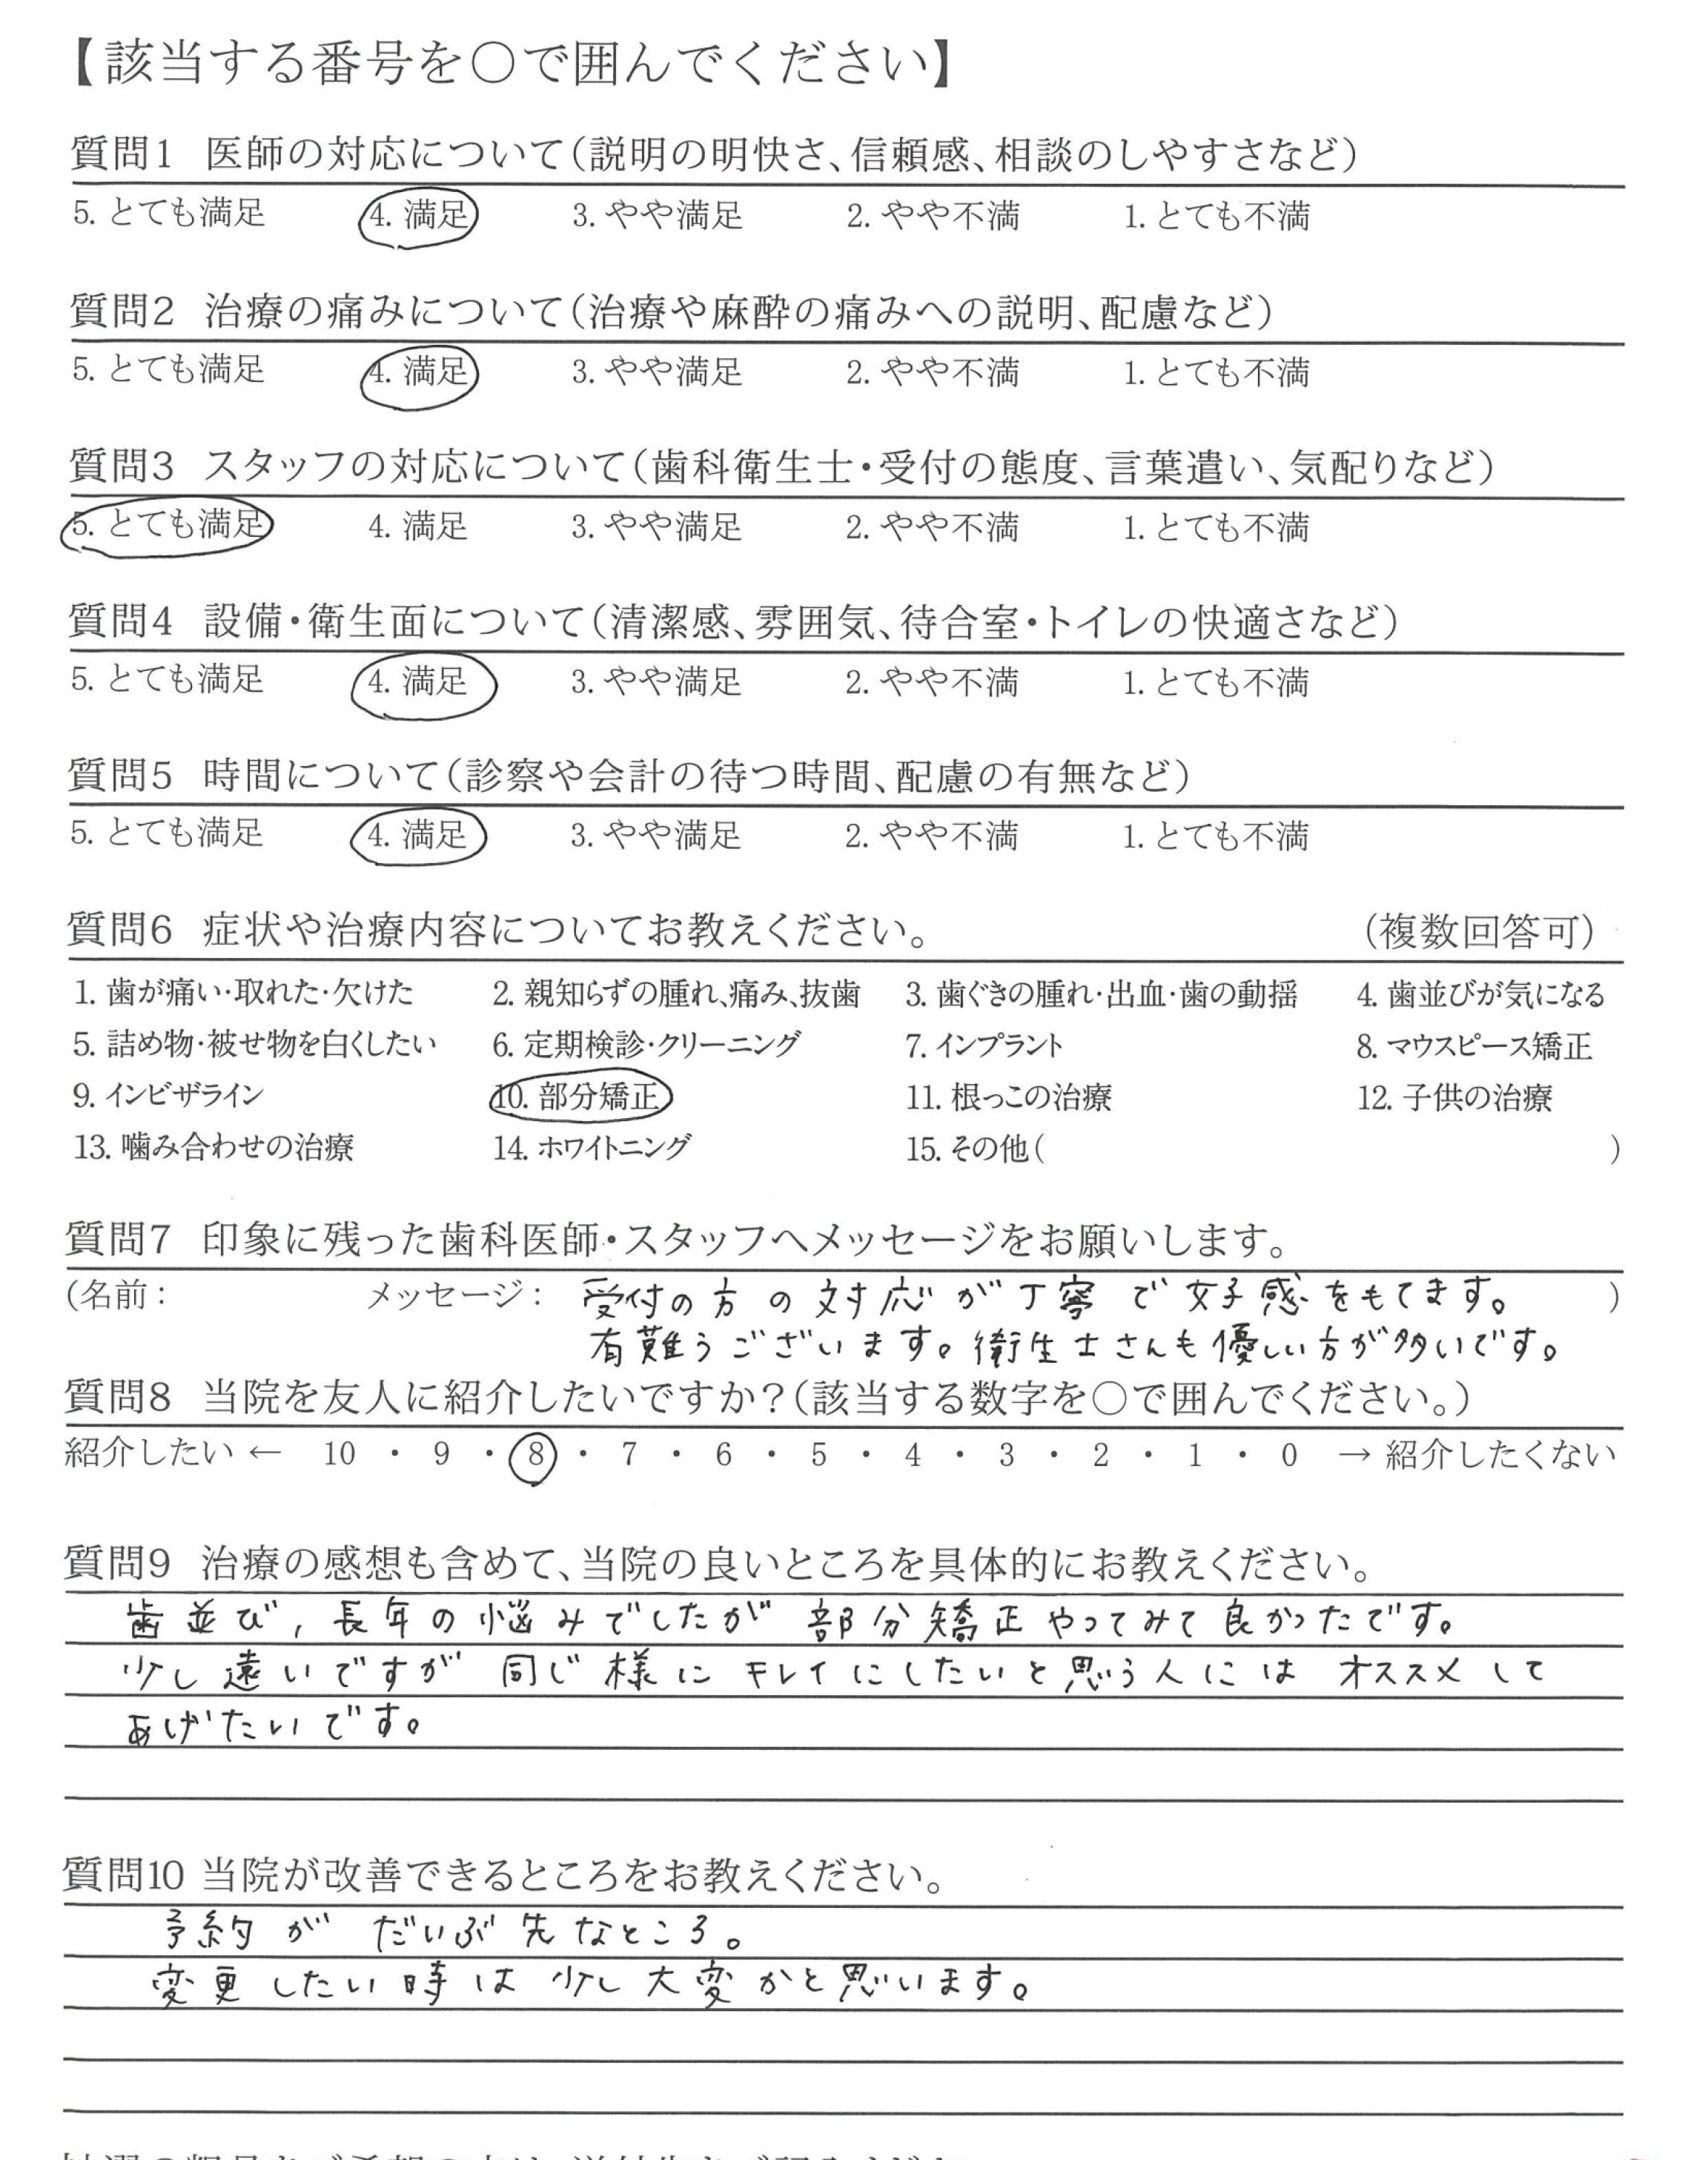 【該当する番号を〇で囲んでください】
質問1 医師の対応について(説明の明快さ、信頼感、相談のしやすさなど)
5. とても満足 4. 満足 3. やや満足 2. やや不満 1. とても不満
質問2 治療の痛みについて(治療や麻酔の痛みへの説明、配慮など)
5. とても満足 4. 満足 3. やや満足 2. やや不満 1. とても不満
質問3 スタッフの対応について(歯科衛生士・受付の態度、言葉遣い、気配りなど)
5. とても満足 4. 満足 3. やや満足 2. やや不満 1. とても不満
質問4 設備・衛生面について(清潔感、雰囲気、待合室・トイレの快適さなど)
5. とても満足 4. 満足 3. やや満足 2. やや不満 1. とても不満
質問5 時間について(診察や会計の待つ時間、配慮の有無など)
5. とても満足 4. 満足 3. やや満足 2. やや不満 1. とても不満
質問6 症状や治療内容についてお教えください。 (複数回答可)
1. 歯が痛い・取れた・欠けた 2. 親知らずの腫れ、痛み、抜歯 3. 歯ぐきの腫れ・出血・歯の動揺 4. 歯並びが気になる
5. 詰め物・被せ物を白くしたい 6. 定期検診・クリーニング 7. インプラント 8. マウスピース矯正
9. インビザライン 10. 部分矯正 11. 根っこの治療 12. 子供の治療
13. 噛み合わせの治療 14. ホワイトニング 15. その他( )
質問7 印象に残った歯科医師・スタッフへメッセージをお願いします。
(名前: メッセージ: 受付の方の対応が丁寧で好感をもてます。 )
有難うございます。衛生士さんも優しい方が多いです。
質問8 当院を友人に紹介したいですか?(該当する数字を〇で囲んでください。)
紹介したい ← 10 ・ 9 ・ 8 ・ 7 ・ 6 ・ 5 ・ 4 ・ 3 ・ 2 ・ 1 ・ 0 → 紹介したくない
質問9 治療の感想も含めて、当院の良いところを具体的にお教えください。
歯並び, 長年の悩みでしたが 部分矯正やってみて良かったです。
少し遠いですが 同じ様に キレイにしたいと思う人には オススメして
あげたいです。
質問10 当院が改善できるところをお教えください。
予約が だいぶ先なところ。
変更したい時は 少し大変かと思います。